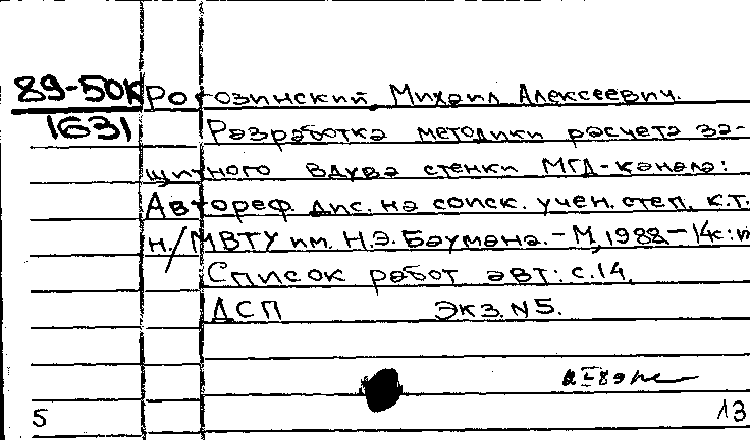 89-50к Рогозинский, Михаил Алексеевич.
1631 Разработка методики расчета за-
щитного вдува стенки МГД-канала:
Автореф. дис. на соиск. учен. степ. к.т.
н./МВТУ им. Н.Э. Баумана. - М, 1988 - 14с:и
Список работ авт: с.14.
ДСП Экз. N5.
5 13